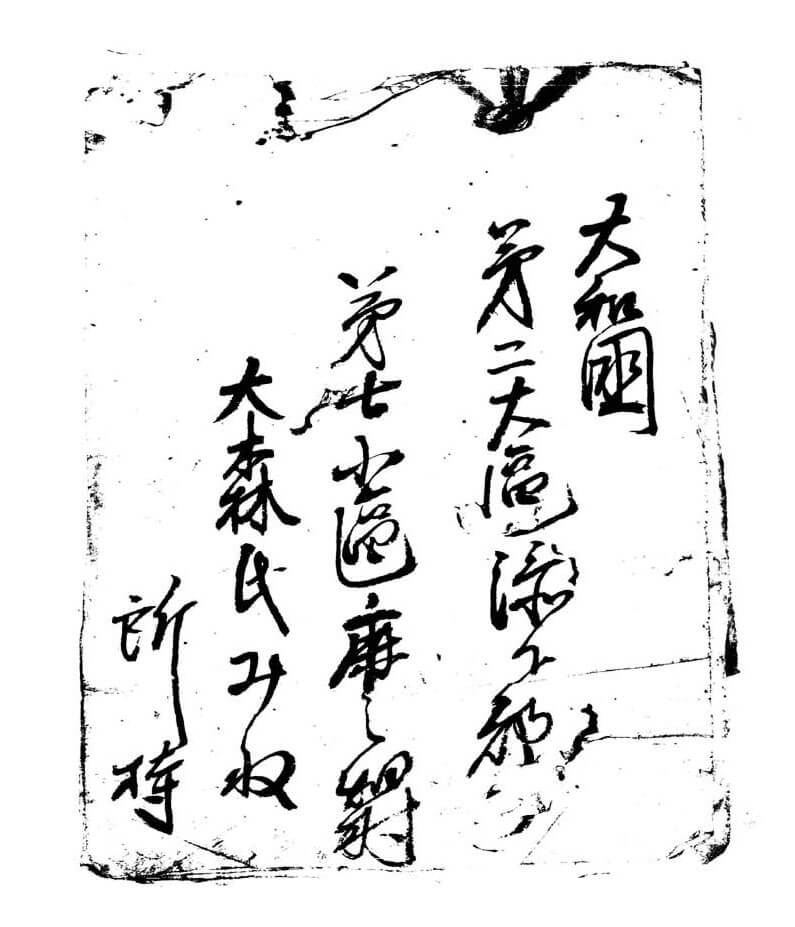 大和國
第二大區添下郡
第七小區鹿之畑村
大森氏
所持